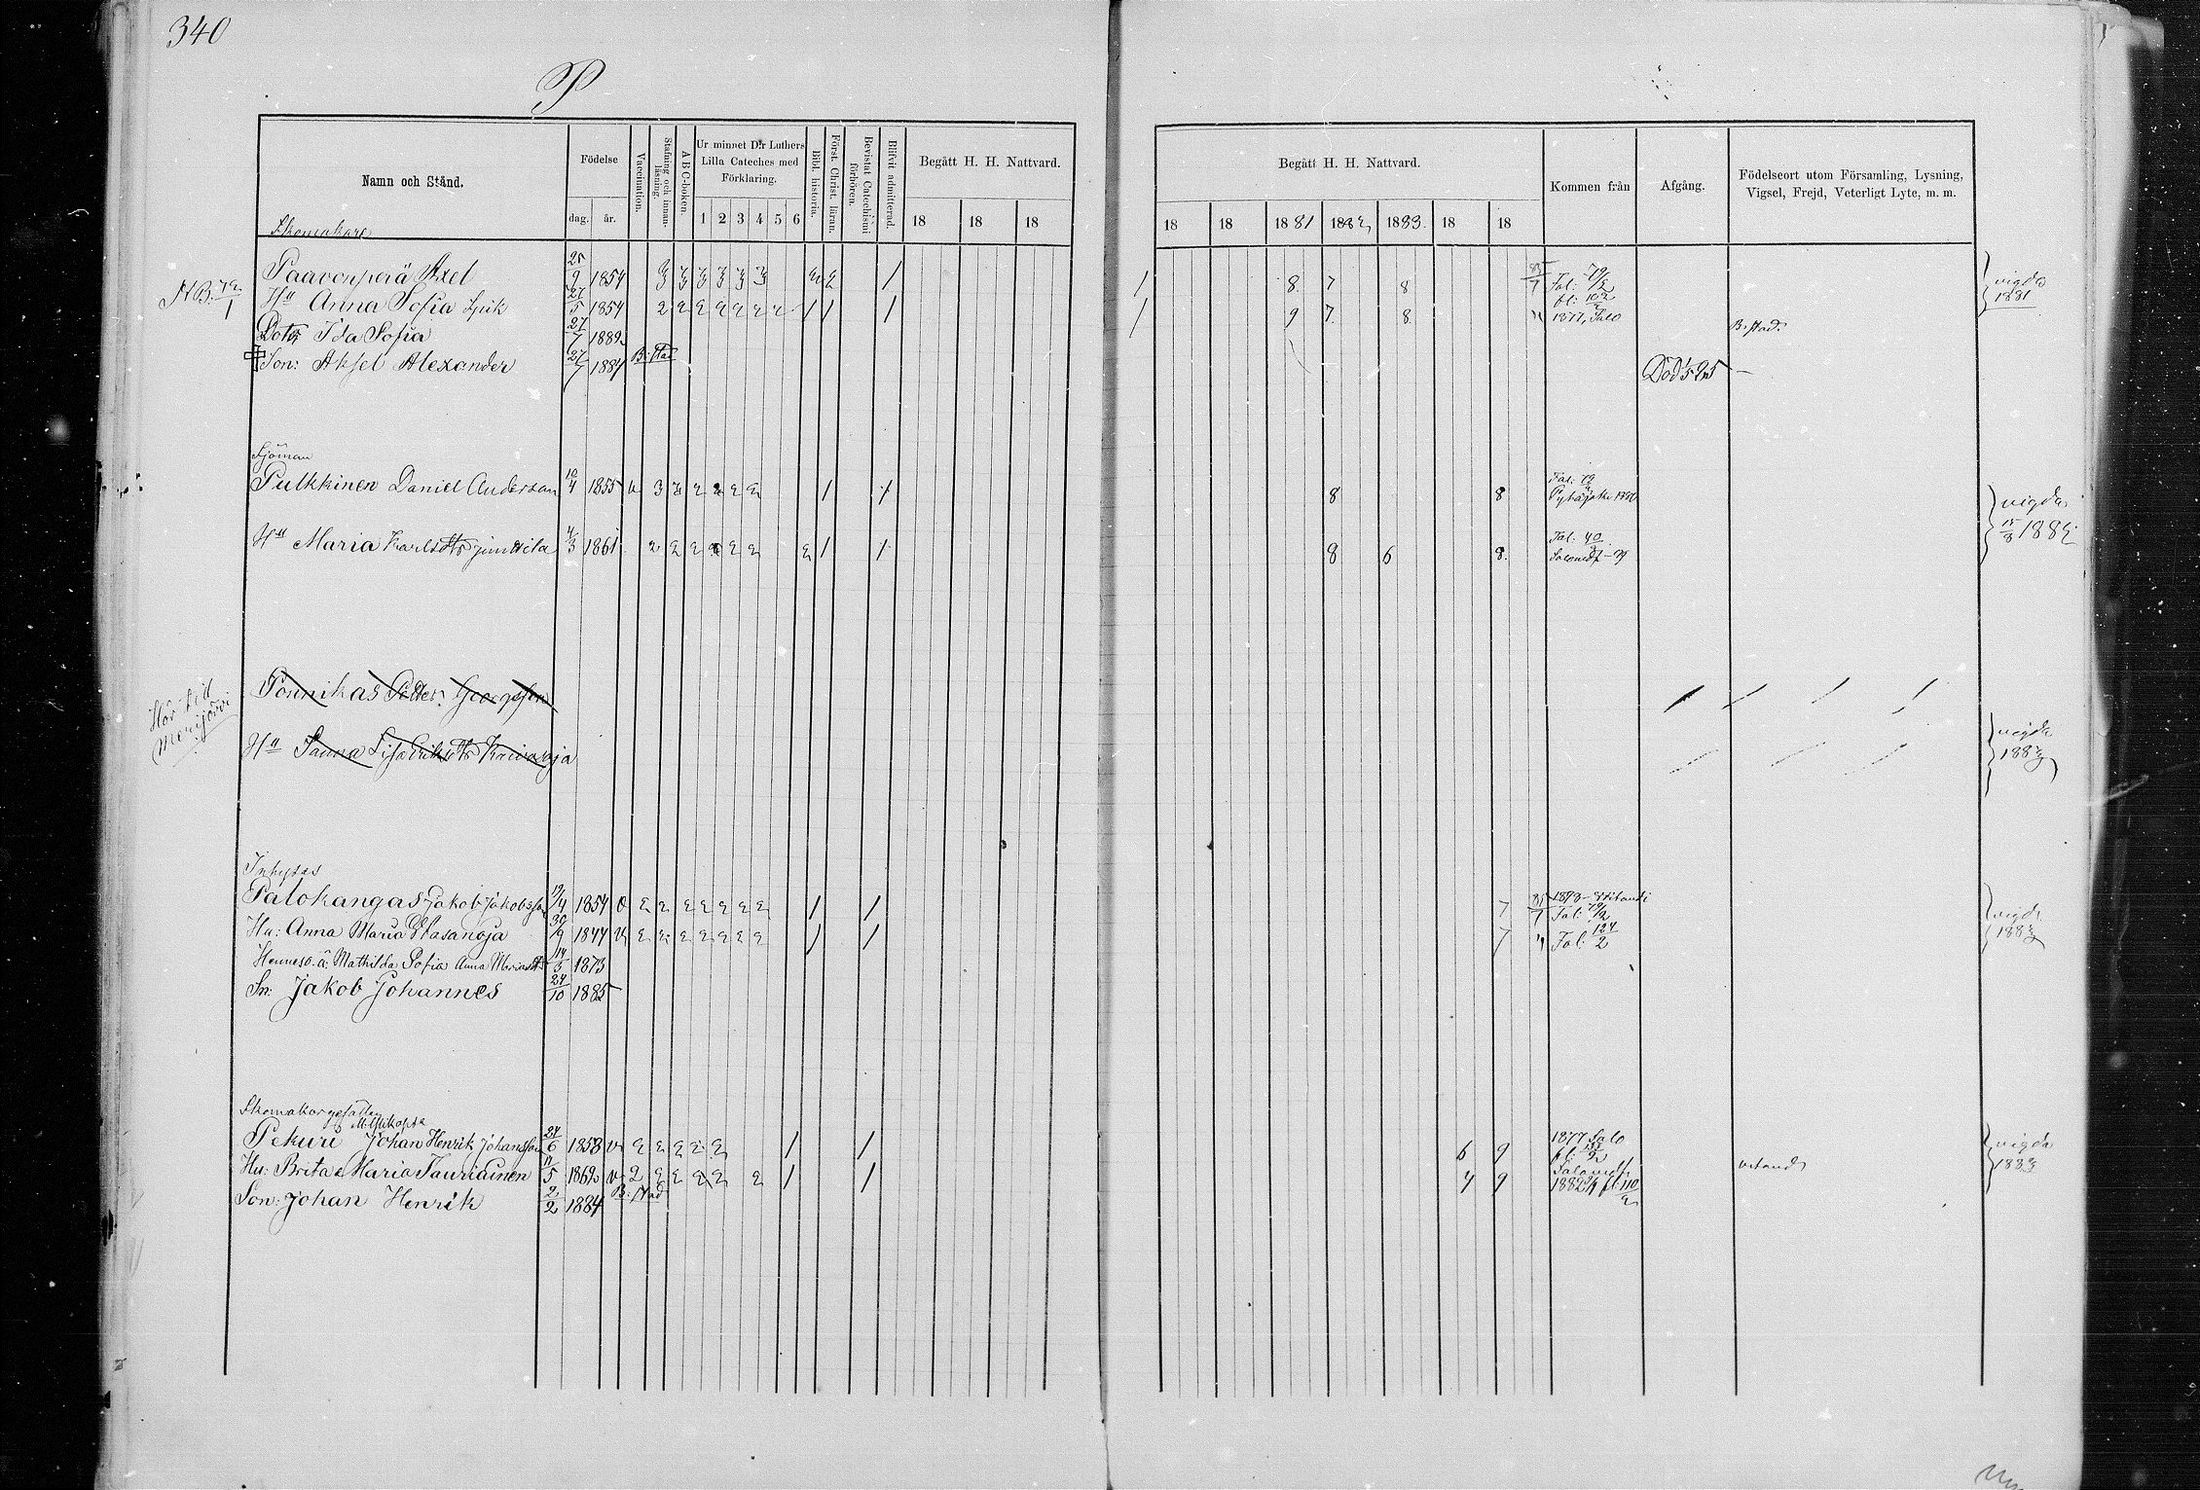 340
P
Namn och Stånd.
Födelse
dag. år.
Vaccination.
Stafning och innanläsning.
A B C-boken.
Ur minnet D:r Luthers Lilla Cateches med Förklaring.
1 2 3 4 5 6
Bibl. historia.
Först. Christ. läran.
Bevistat Catechismi förhören.
Blifvit admitterad.
Begått H. H. Nattvard.
18 18 18
Begått H. H. Nattvard.
18 18 1881 1882 1883 18 18
Kommen från
Afgång.
Födelseort utom Församling, Lysning, Vigsel, Frejd, Veterligt Lyte, m. m.
Skomakare
Paavonperä Axel 25/9 1854 3 3 3 3 3 3 1 8 7 8 Fol: 79/2 vigda 1881
Hu Anna Sofia 27/5 1854 2 2 2 2 2 2 2 1 1 1 9 7 8 1877, Salo
Dotr Ida Sofia 27/7 1882 B: stad
Son: Aksel Alexander 27/7 1884 B: stad Död 1/5 85
Sjöman
Pulkkinen Daniel Andersson 10/4 1855 v 3 2 2 2 2 2 1 1 8 8 Pyhäjoki 1880 vigda
Hu Maria Karlsdtr 4/3 1861 2 2 2 2 2 2 2 1 1 8 6 8 Fol. 40 15/8 1882
Hör till Merijärvi
Ponnikas Petter Georgsson
Hu Sanna Lisa Eriksdtr Kaivosoja vigda 1883
Inhyses
Palokangas Jakob Jakobsson 19/4 1854 o 2 2 2 2 2 2 2 1 1 7 Fol: 79/2 vigda 1883
Hu: Anna Maria Hasanoja 30/9 1847 v 2 2 2 2 2 2 2 1 1 7 Fol: 124/2
Hennes o. ä. Mathilda Sofia Anna Mariadtr 14/3 1873
Sn: Jakob Johannes 24/10 1885
Skomakargesällen
Pekuri Johan Henrik Johansson 24/6 1858 v 2 2 2 2 2 1 1 6 9 1877 Salo vigda 1883
Hu: Brita Maria Tauriainen 11/5 1862 v 2 2 2 2 2 2 1 1 4 9 1882
Son: Johan Henrik 2/2 1884 B: stad